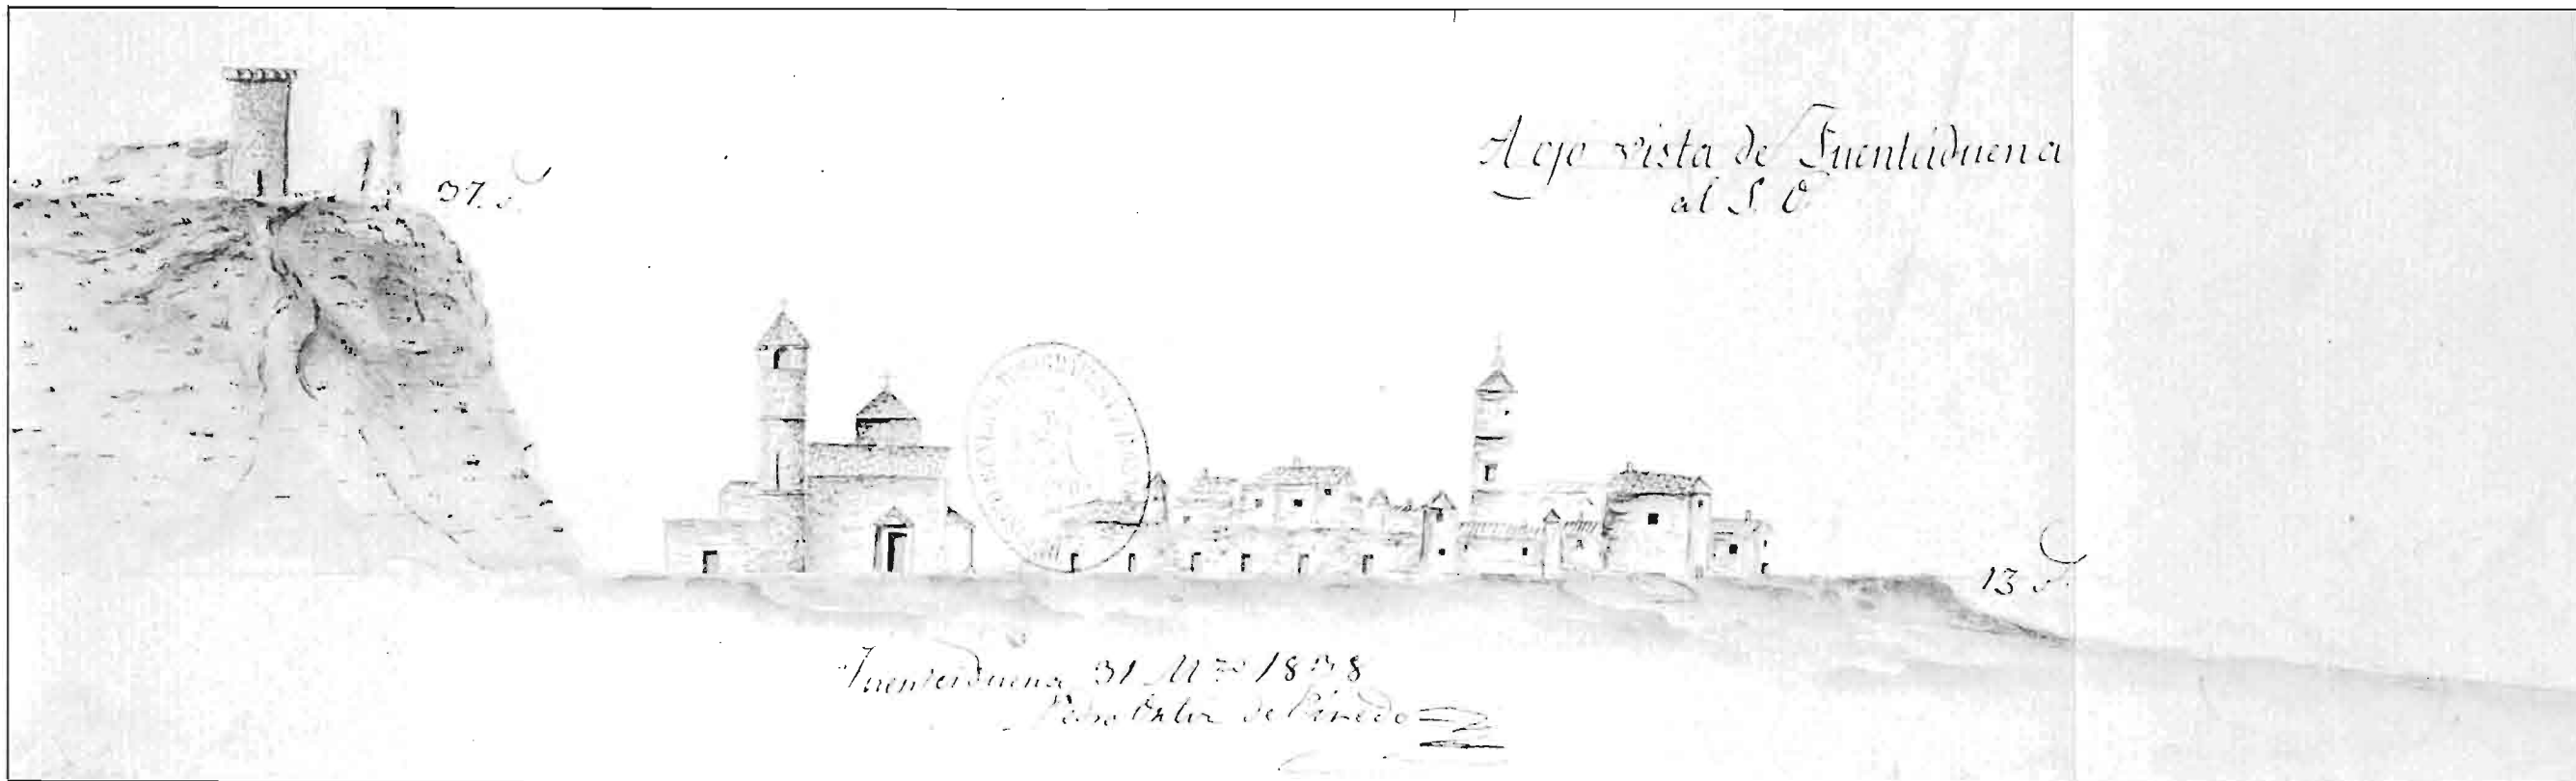 A ojo vista de Fuentidueña
al S. O
37.
13
Fuentidueña 31 Mzo 1838
Pedro de Pinedo